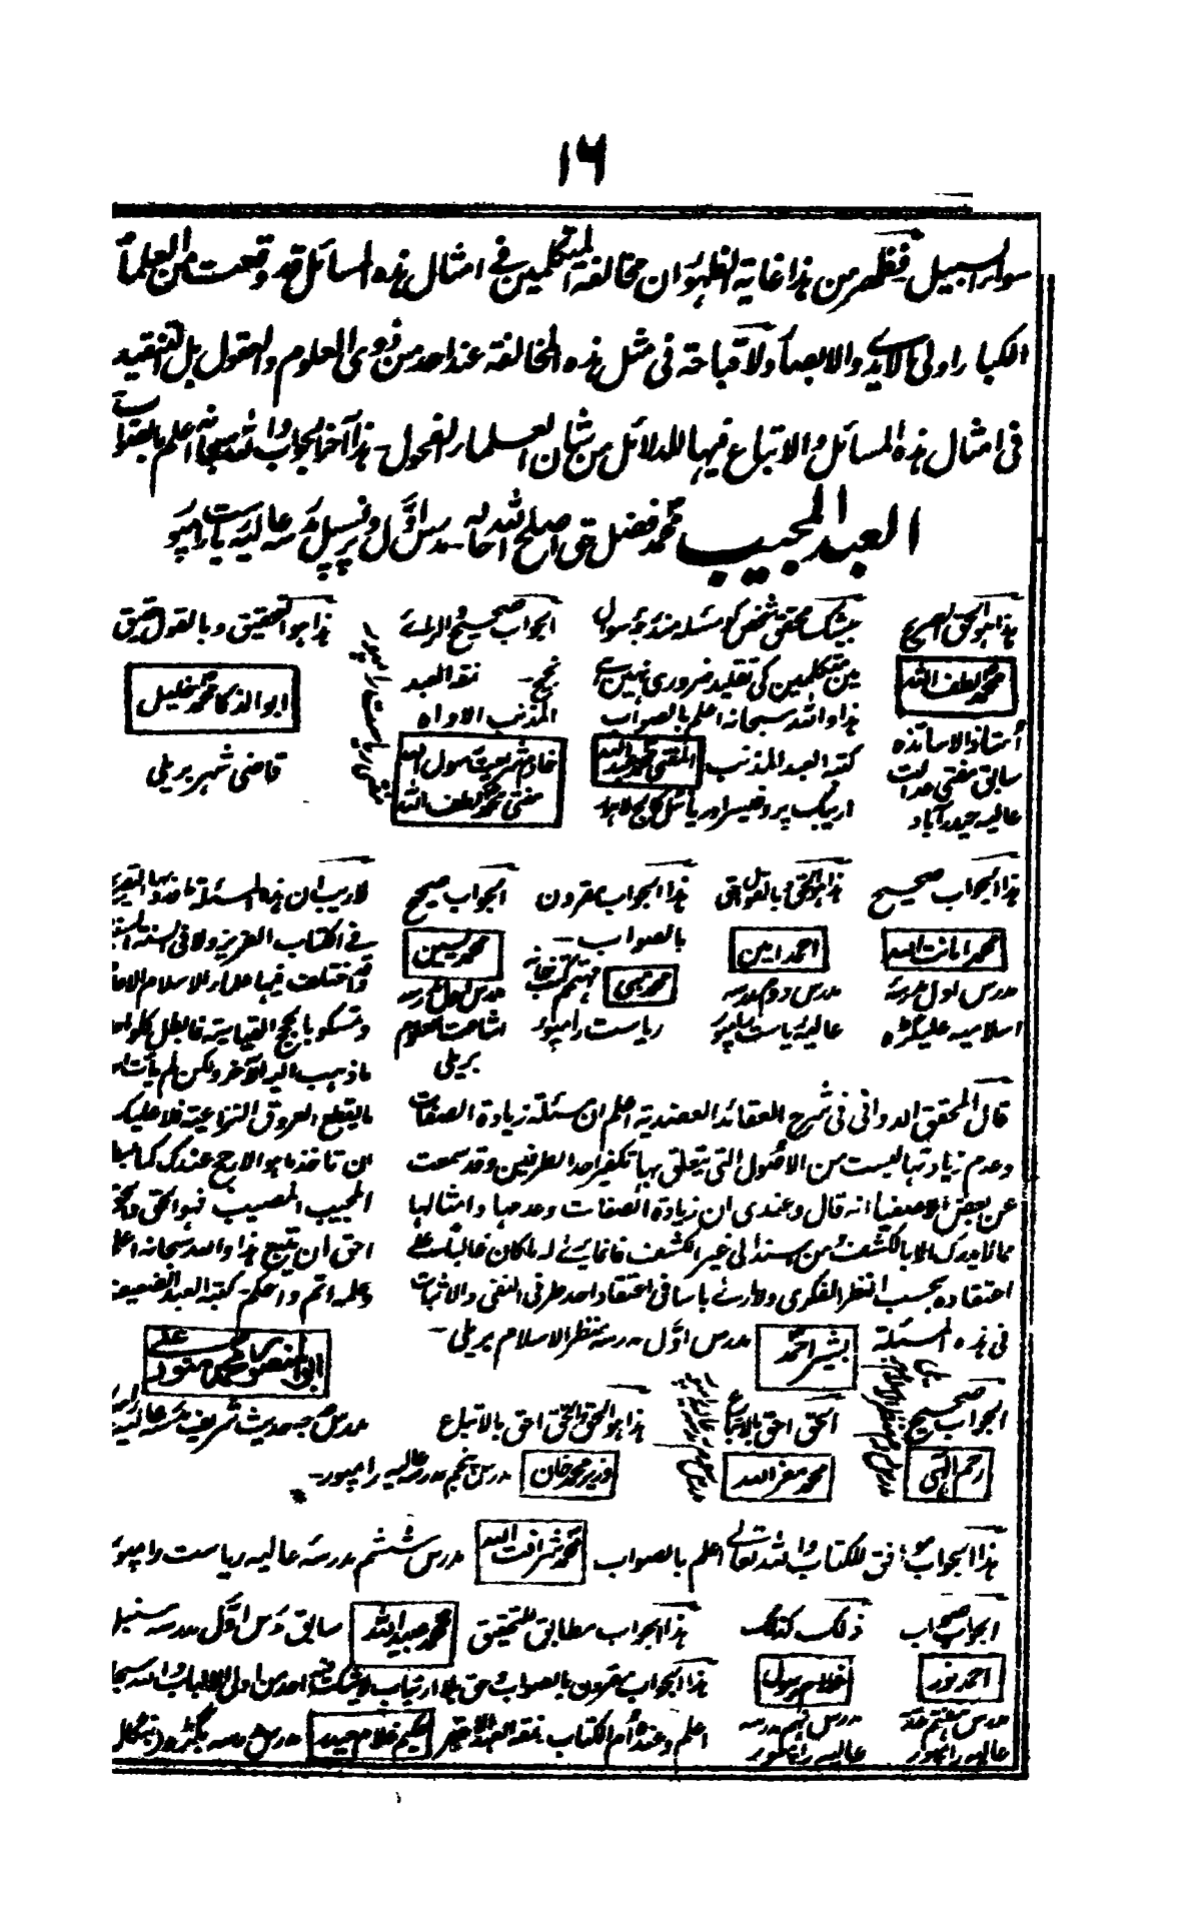 ١٦
سواء السبيل فظهر من هذا غاية الظهور ان مخالفة المتكلمين في امثال هذه المسائل قد وقعت من العلماء
الكبار اولى الايدي والابصار ولا قباحة في مثل هذه المخالفة عند احد من ذوى العلوم والعقول بل التنقيد
في امثال هذه المسائل والاتباع فيها للدلائل من شان العلماء الفحول۔ هذا آخر الجواب والله سبحانه اعلم بالصواب
العبد المجيب محمد فضل حق اصلح الله حاله۔ مدرس اوّل و پرنسپل مدرسه عالیه ریاست رامپور
هذا هو الحق الصريح
محمد لطف الله
أستاذ الاساتذه
سابق مفتى عدالت
عاليه حيدرآباد
بیشک محقق شخص کو مسئله مندرجه سوال
میں متکلمین کی تقلید ضروری نہیں ہے
هذا والله سبحانه اعلم بالصواب
كتبه العبد المذنب المفتى محمد عبد الله
عریبک پروفیسر اوریانٹل کالج لاہور
الجواب صحيح والرائے
نجيح۔ نمقه العبد
المذنب الاواه
خادم شريعت رسول الله
مفتى محمد لطف الله
هذا هو التحقيق وبالقول حقيق
ابو الذكا محمد خليل
قاضی شہر بریلی
هذا الجواب صحيح
محمد امانت الله
مدرس اول مدرسه
اسلامیه علیگڑه
احمد امین
مدرس دوم مدرسه
عالیه ریاست رامپور
هذا الجواب مقرون
بالصواب۔
مهتمم کتب خانه
ریاست رامپور
الجواب صحيح
محمد يسين
مدرس اول مدرسه
اشاعت العلوم
بریلی
لا ريب ان هذه المسئلة ما
في الكتاب العزيز ولا في السنة
وقد اختلف فيها علماء الاسلام
وتمسكوا بالحجج القياسية فابطل كل واحد
ما ذهب اليه الآخر ولكن لم يأت
ما يقطع العروق النزاعية فلا عليك
ان تاخذ ما هو الارجح عندك كما
المجيب المصيب فهو الحق والحق
احق ان يتبع هذا والله سبحانه اعلم
وعلمه اتم واحكم۔ كتبه العبد الضعيف
مدرس حديث شريف مدرسه عاليه
قال المحقق الدواني في شرح العقائد العضدية اعلم ان مسئلة زيادة الصفات
وعدم زيادتها ليست من الاصول التي يتعلق بها تكفير احد الطرفين وقد سمعت
عن بعض الاصفياء انه قال وعندى ان زيادة الصفات وعدمها وامثالها
مما لا يدرك الا بالكشف ومن اسنده الى غير الكشف فانما يترائى له ما كان غالبا على
اعتقاده بحسب النظر الفكرى ولا ارى باسا في اعتقاد احد طرفى النفى والاثبات
في هذه المسئلة بشير احمد مدرس اوّل مدرسه منظر الاسلام بریلی۔
الجواب صحيح
رحم الٰہی
الحق احق بالاتباع
محمد معز الله
هذا هو الحق والحق احق بالاتباع
وزير محمد خان مدرس پنجم مدرسه عالیه رامپور۔
هذا الجواب موافق للكتاب والله تعالى اعلم بالصواب محمد شرافت الله مدرس ششم مدرسه عالیه ریاست رامپور
الجواب صواب
احمد نور
مدرس هفتم مدرسه
عالیه رامپور
ذلك كذلك
غلام رسول
مدرس نهم مدرسه
عالیه رامپور
هذا الجواب مطابق للتحقيق محمد عبيد الله سابق مدرس اوّل مدرسه سنبهل
هذا الجواب مقرون بالصواب وحق بلا ارتياب لا يشك فيه احد من اولى الالباب والله سبحانه
اعلم وعنده أم الكتاب نمقه العبد الاحقر حکیم غلام حیدر مدرس مدرسه